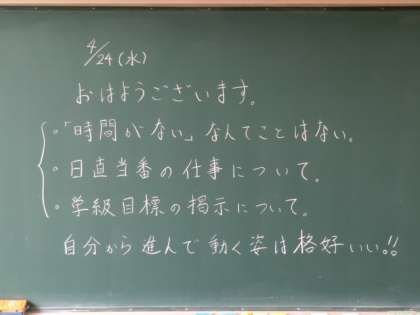 4/24(水)
おはようございます。
・「時間がない」なんてことはない。
・日直当番の仕事について。
・学級目標の掲示について。
自分から進んで動く姿は格好いい!!